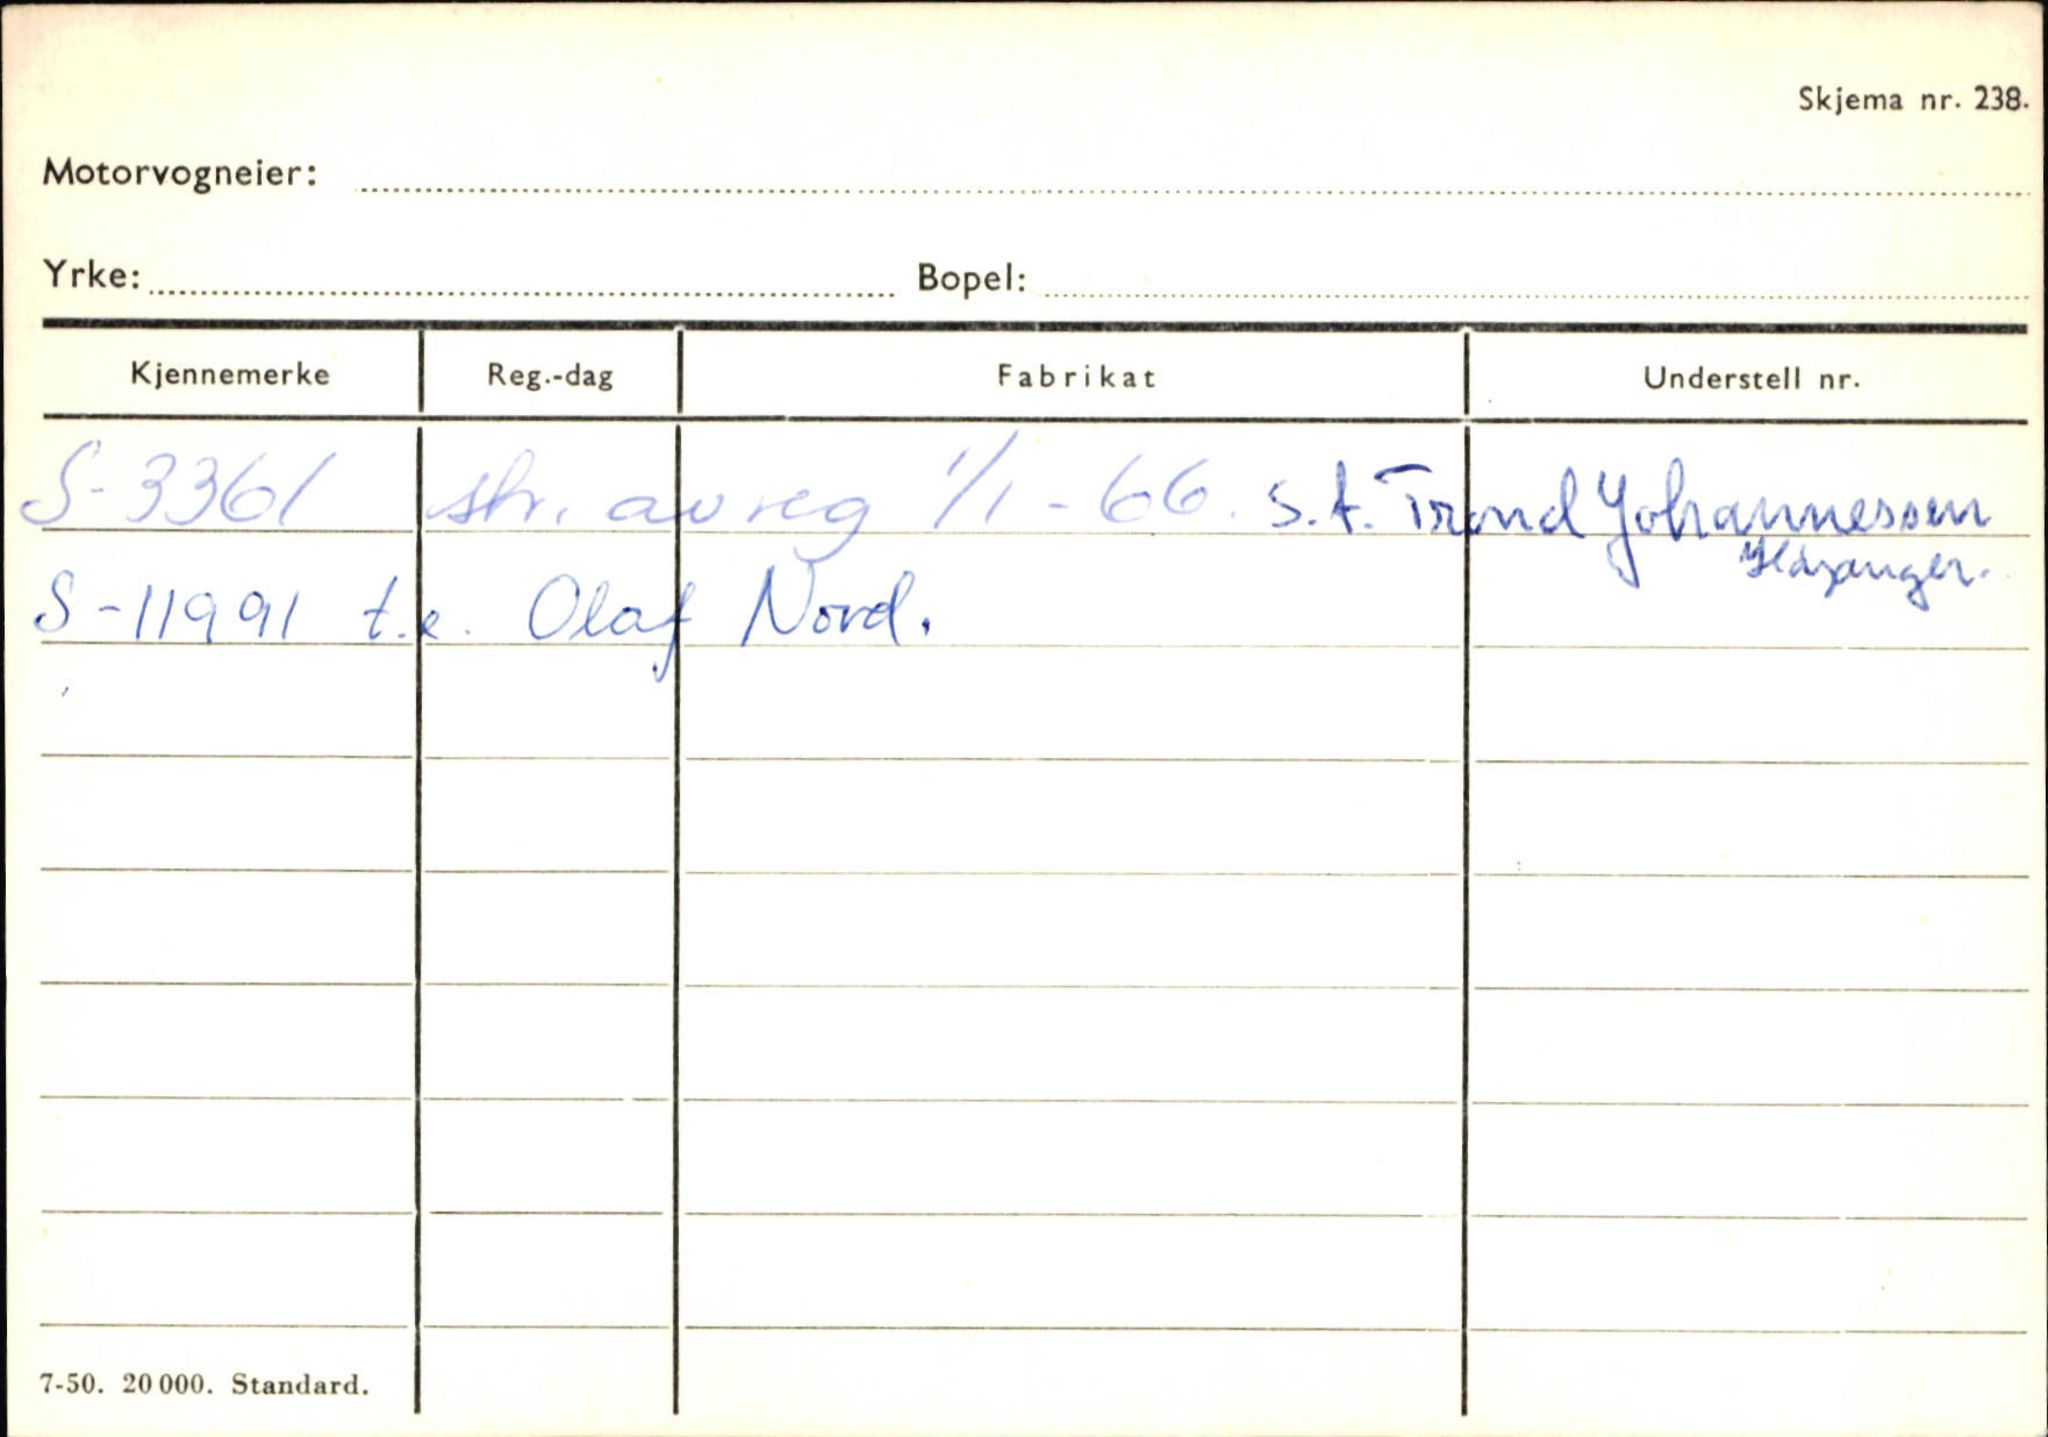 Skjema nr. 238.
Motorvogneier:
Yrke: Bopel:
Kjennemerke Reg.-dag Fabrikat Understell nr.
S-3361 str. avreg 1/1-66. s.t. Trond Johannessen
Høyanger.
S-11991 t.e. Olaf Nord.
7-50. 20000. Standard.